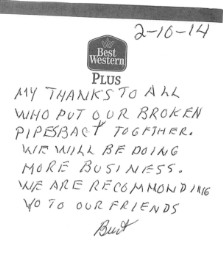 2-10-14
Best
Western
PLUS
MY THANKS TO ALL
WHO PUT OUR BROKEN
PIPESBACT TOGFTHER.
WE WILL BE DOING
MORE BUSINESS.
WE ARE RECOMMONDING
YO TO OUR FRIENDS
Burt